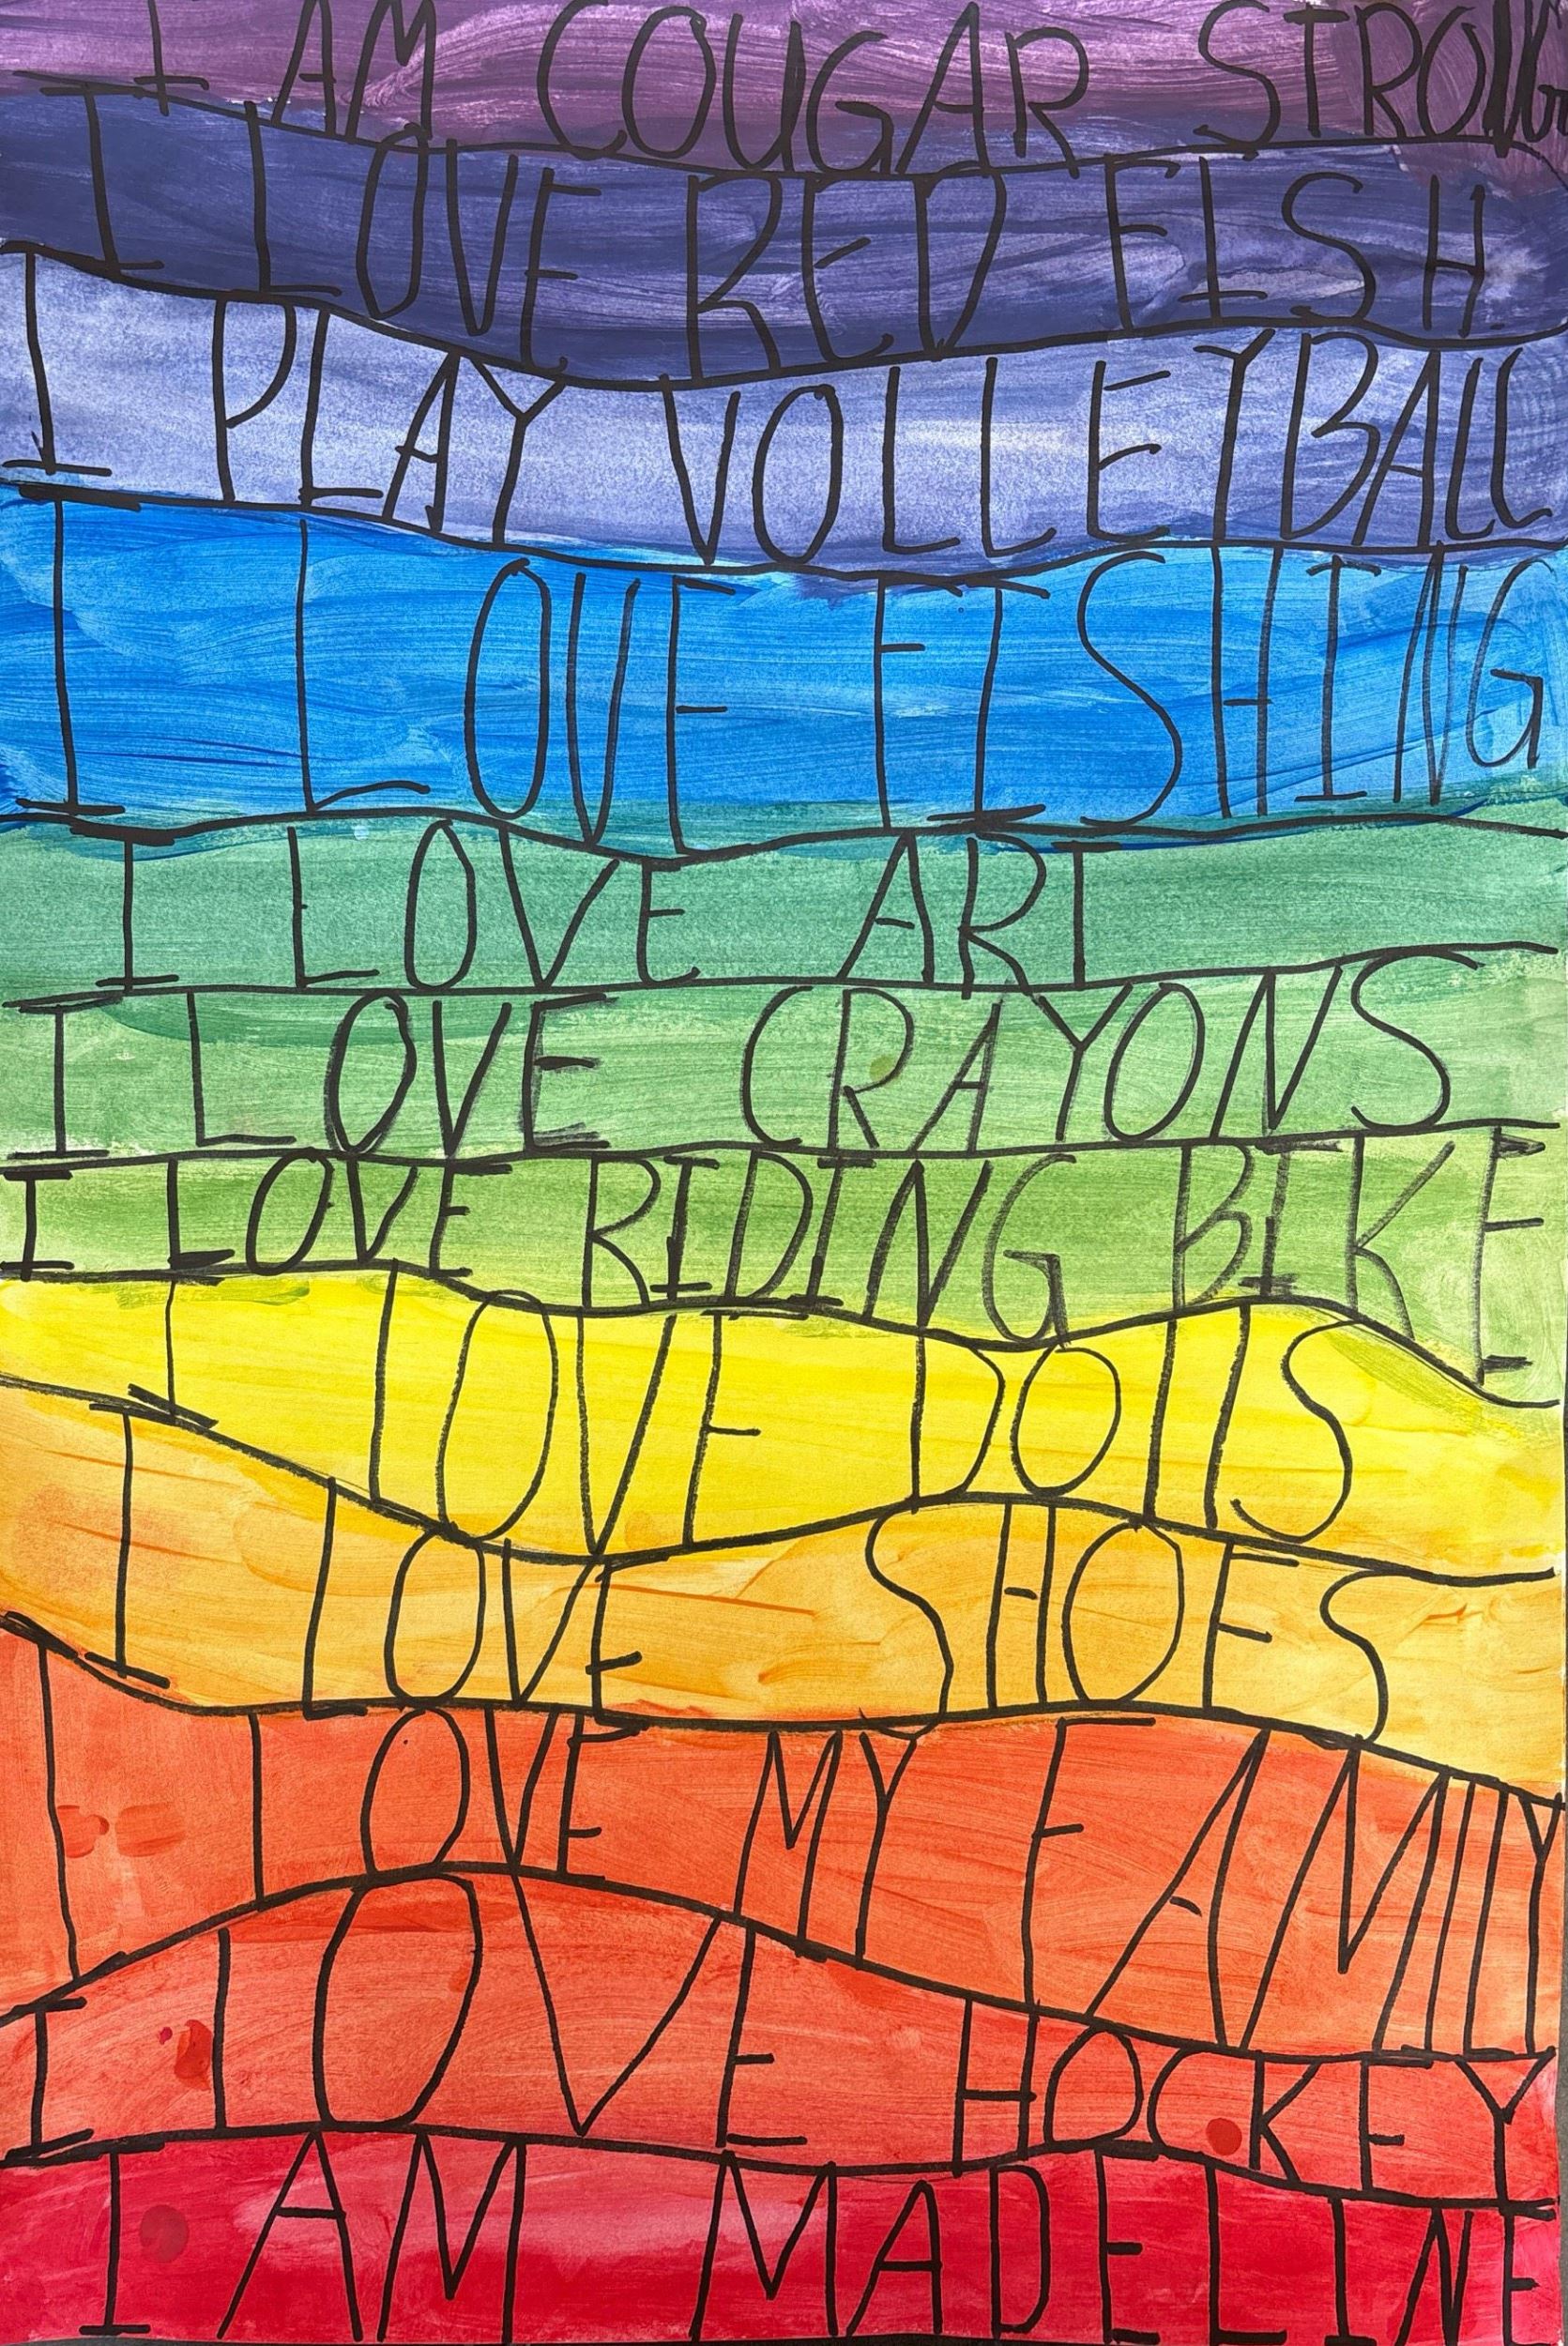 I AM COUGAR STRONG
I LOVE RED FISH
I PLAY VOLLEYBALL
I LOVE FISHING
I LOVE ART
I LOVE CRAYONS
I LOVE RIDING BIKE
I LOVE DOLLS
I LOVE SHOES
I LOVE MY FAMILY
I LOVE HOCKEY
I AM MADELINE